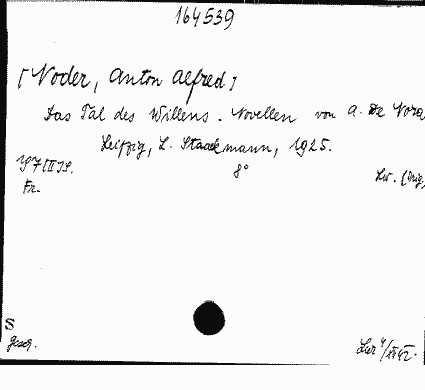 164539
[Noder, Anton Alfred]
Das Tal des Willens. Novellen von A. De Nora
Leipzig, L. Staackmann, 1925.
8° Lw. (Orig.
Fr.
S
Gesch.